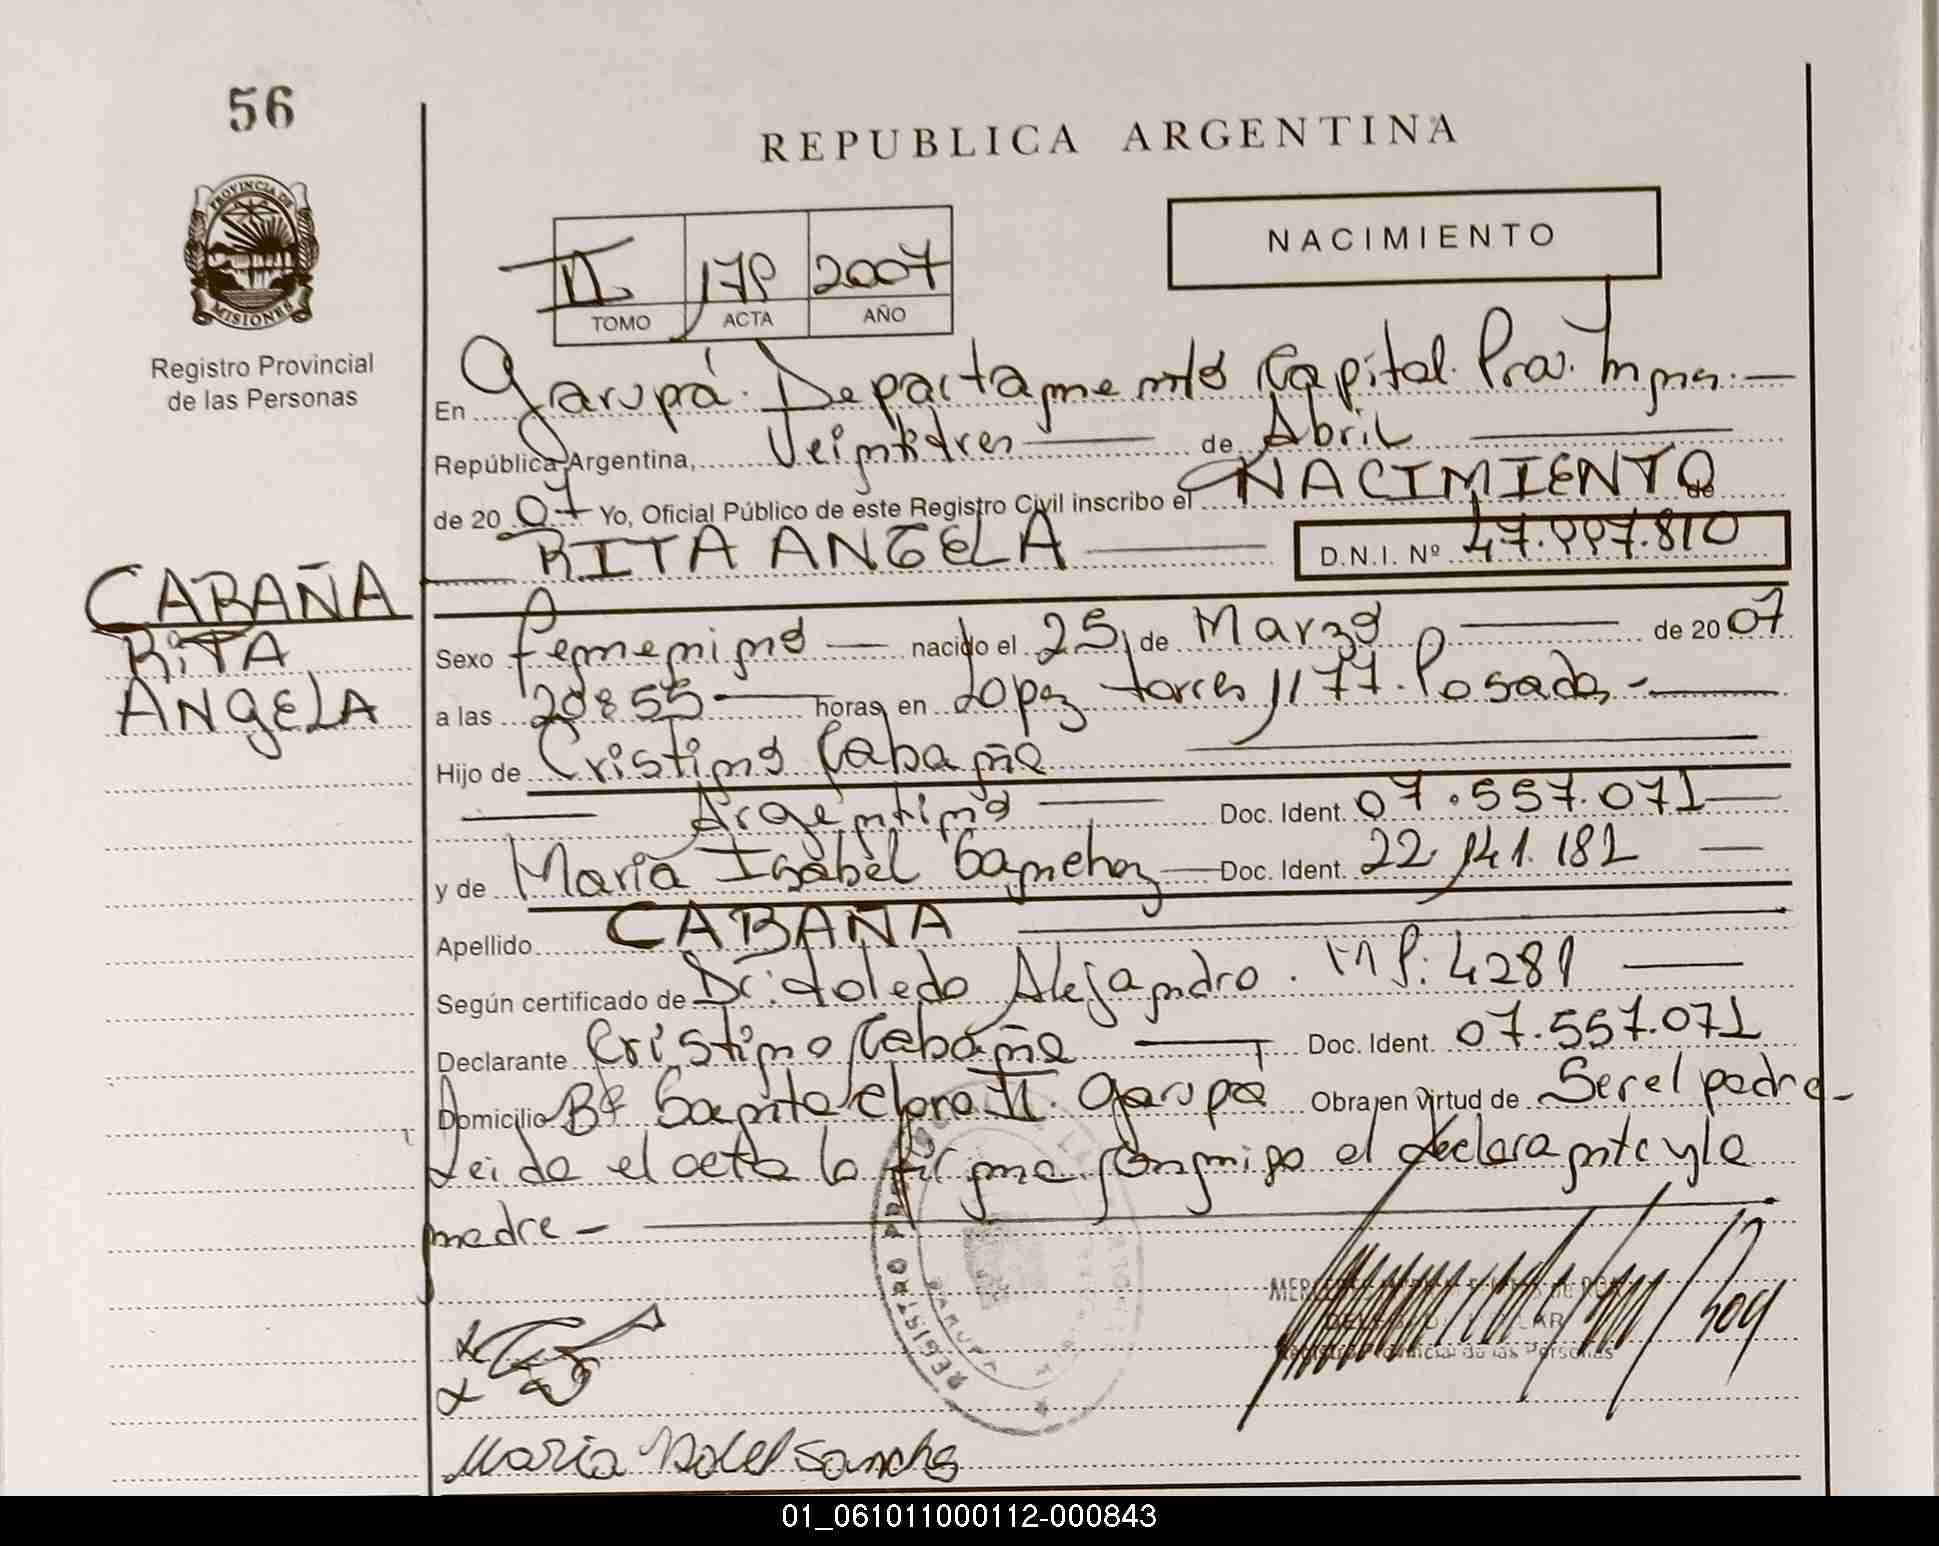 56
REPUBLICA ARGENTINA
PROVINCIA DE
MISIONES
Registro Provincial
de las Personas
NACIMIENTO
II 179 2007
TOMO ACTA AÑO
En Garupá. Departamento Capital. Prov. Mnes.
República Argentina, Veintitres de Abril
de 2007 Yo, Oficial Público de este Registro Civil inscribo el NACIMIENTO de
RITA ANGELA D.N.I. Nº 47.997.810
CABAÑA
RITA
ANGELA
Sexo femenino nacido el 25 de Marzo de 2007
a las 20:55 horas, en Lopez torres 1177. Posadas -
Hijo de Cristino Cabaña
Argentino Doc. Ident. 07.557.071
y de Maria Isabel Sanchez Doc. Ident. 22.141.182
Apellido CABAÑA
Según certificado de Dr. toledo Alejandro. MP: 4289
Declarante Cristino Cabaña Doc. Ident. 07.557.071
Domicilio Bº Santa Clara II. Garupá Obra en virtud de Ser el padre -
Leida el acta la firma conmigo el declarante y la
madre -
REGISTRO
GARUPA
DELEGADA TITULAR
Registro Provincial de las Personas
Maria Isabel Sanchez
01_061011000112-000843